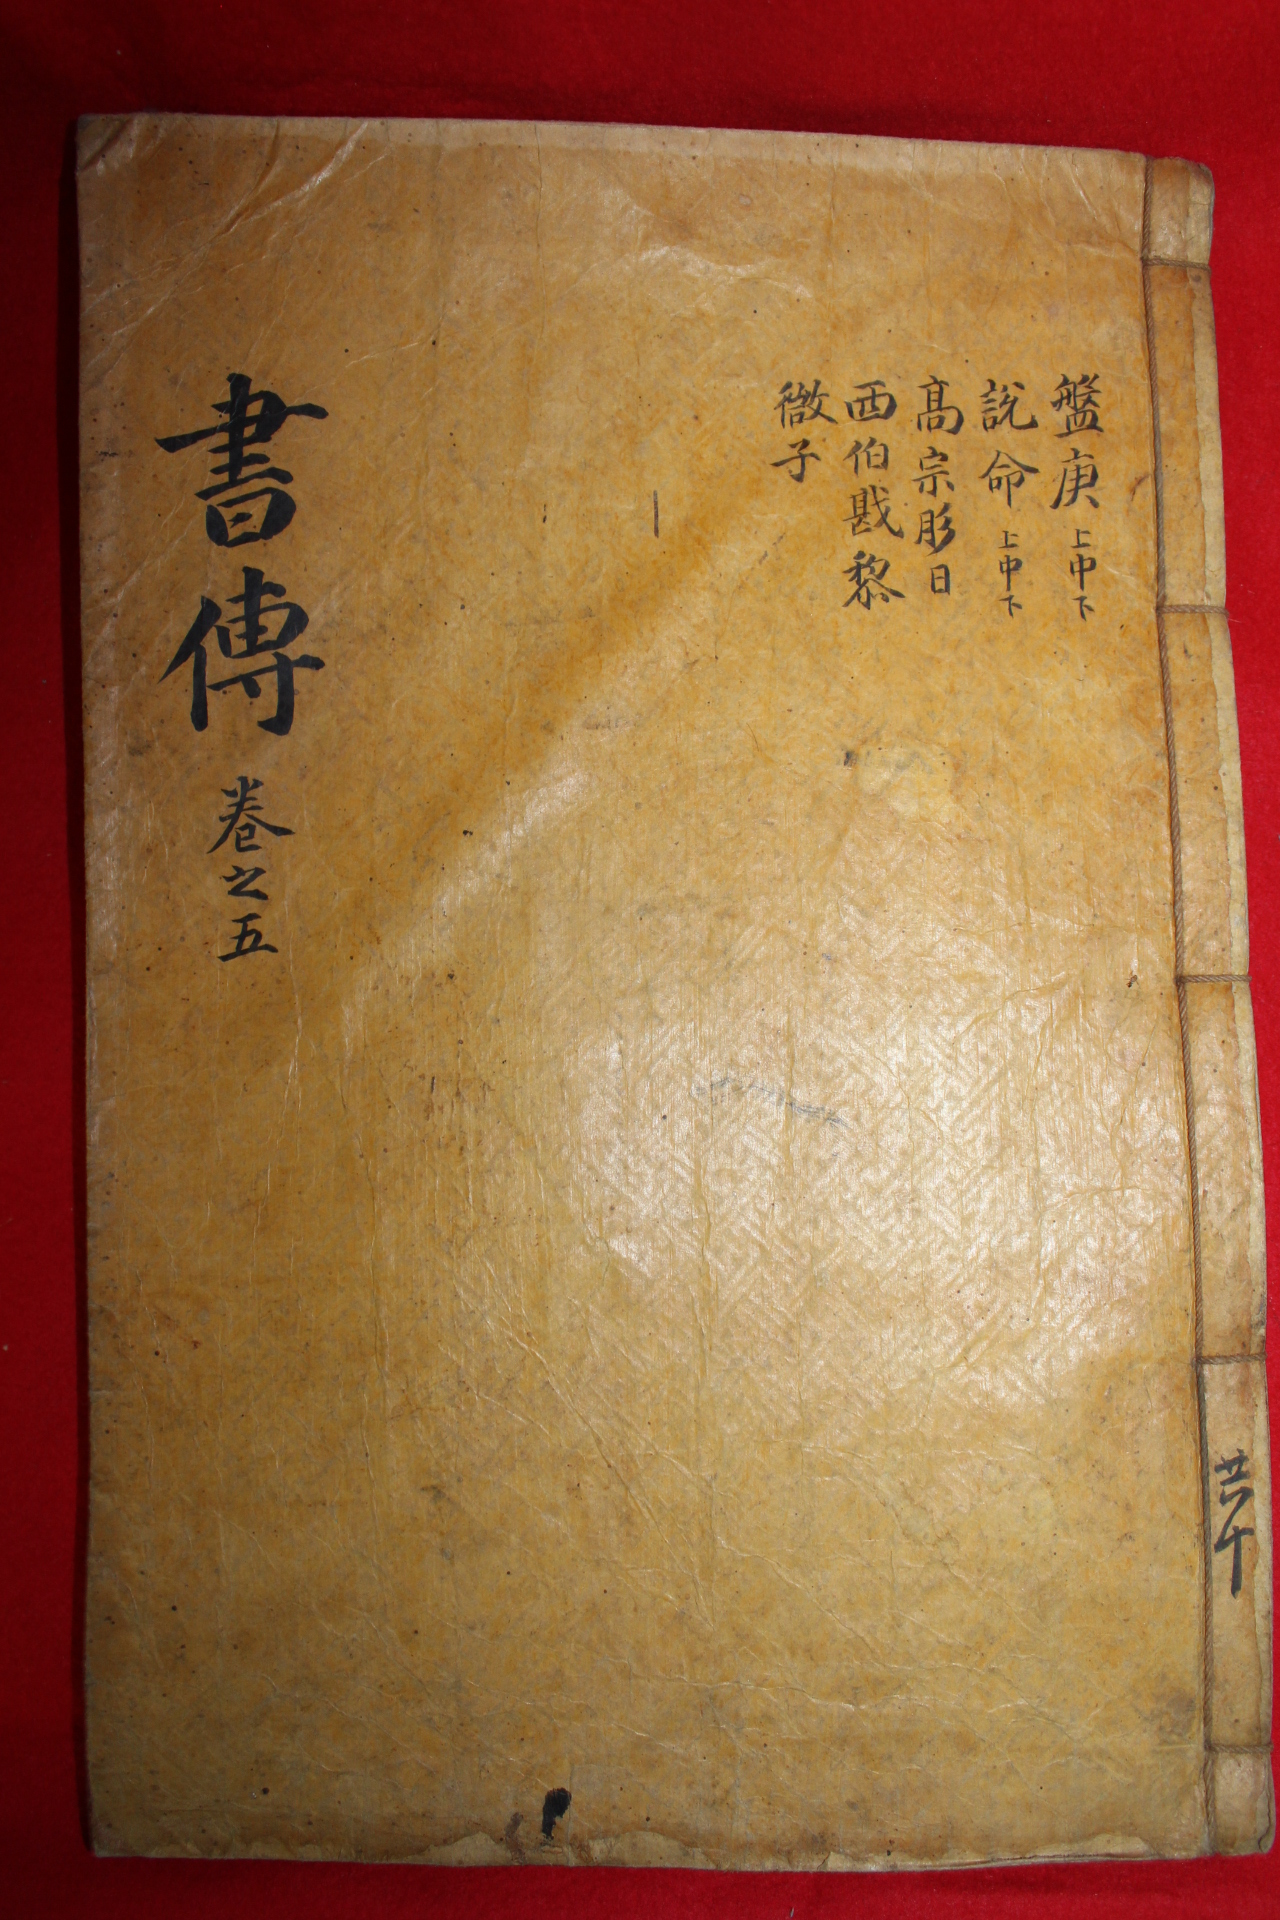 盤庚上中下
說命上中下
高宗肜日
西伯戡黎
微子
書傳卷之五
共十